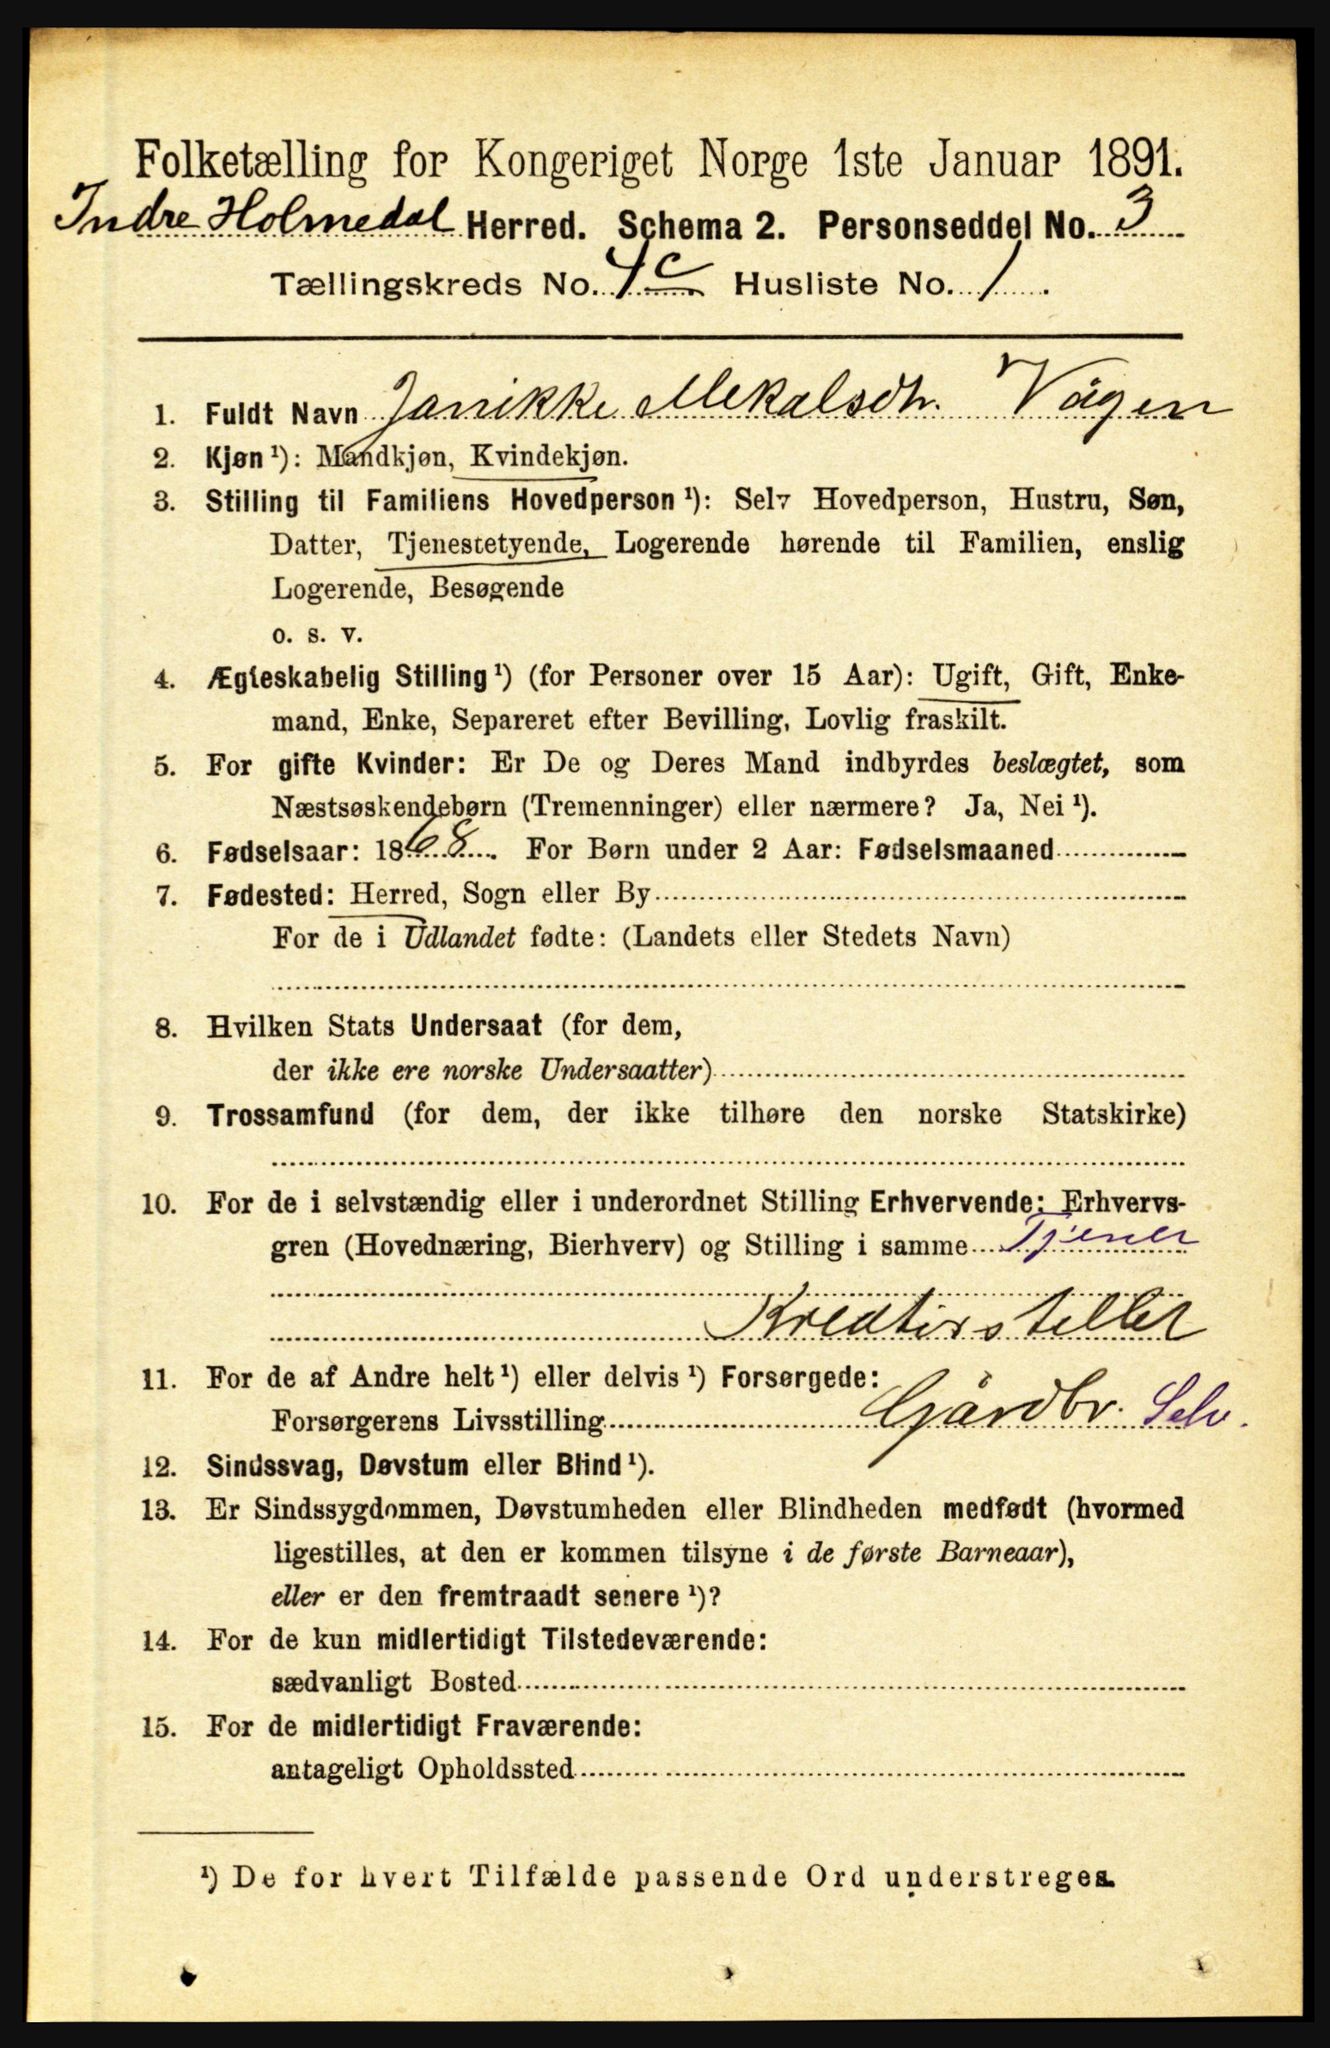 Folketælling for Kongeriget Norge 1ste Januar 1891.
Indre Holmedal Herred. Schema 2. Personseddel No. 3
Tællingskreds No. 4c Husliste No. 1.
1. Fuldt Navn Janikke Mekalsdtr. Vågen
2. Kjøn ¹): Mandkjøn, Kvindekjøn.
3. Stilling til Familiens Hovedperson ¹): Selv Hovedperson, Hustru, Søn,
Datter, Tjenestetyende, Logerende hørende til Familien, enslig
Logerende, Besøgende
o. s. v.
4. Ægteskabelig Stilling ¹) (for Personer over 15 Aar): Ugift, Gift, Enke-
mand, Enke, Separeret efter Bevilling, Lovlig fraskilt.
5. For gifte Kvinder: Er De og Deres Mand indbyrdes beslægtet, som
Næstsøskendebørn (Tremenninger) eller nærmere? Ja, Nei ¹).
6. Fødselsaar: 1868. For Børn under 2 Aar: Fødselsmaaned
7. Fødested: Herred, Sogn eller By
For de i Udlandet fødte: (Landets eller Stedets Navn)
8. Hvilken Stats Undersaat (for dem,
der ikke ere norske Undersaatter)
9. Trossamfund (for dem, der ikke tilhøre den norske Statskirke)
10. For de i selvstændig eller i underordnet Stilling Erhvervende: Erhvervs-
gren (Hovednæring, Bierhverv) og Stilling i samme Tjener
Kreatirsteller
11. For de af Andre helt ¹) eller delvis ¹) Forsørgede:
Forsørgerens Livsstilling Gårdbr. Selv.
12. Sindssvag, Døvstum eller Blind ¹).
13. Er Sindssygdommen, Døvstumheden eller Blindheden medfødt (hvormed
ligestilles, at den er kommen tilsyne i de første Barneaar),
eller er den fremtraadt senere ¹)?
14. For de kun midlertidigt Tilstedeværende:
sædvanligt Bosted
15. For de midlertidigt Fraværende:
antageligt Opholdssted
¹) De for hvert Tilfælde passende Ord understreges.